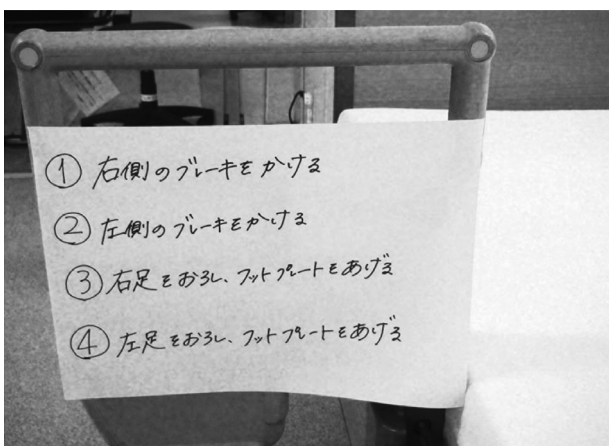 ① 右側のブレーキをかける
② 左側のブレーキをかける
③ 右足をおろし、フットプレートをあげる
④ 左足をおろし、フットプレートをあげる